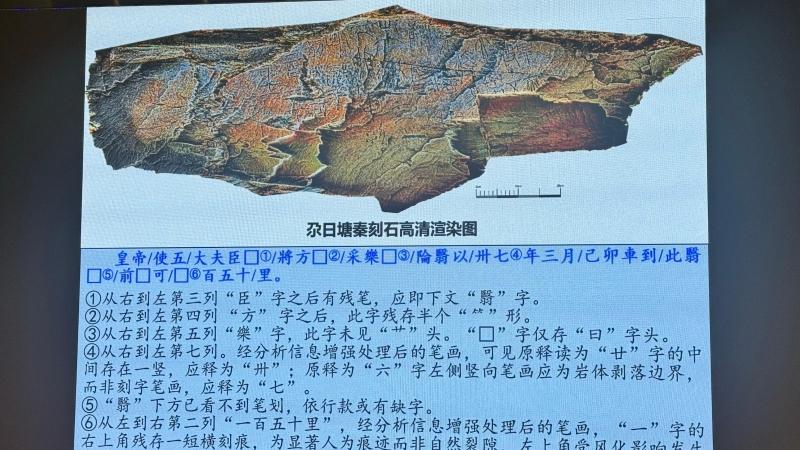 尕日塘秦刻石高清渲染图
皇帝/使五/大夫臣□①/將方□②/采樂□③/陯翳以/卅七④年三月/己卯車到/此翳
□⑤/前□可/□⑥百五十/里。
①从右到左第三列“臣”字之后有残笔，应即下文“翳”字。
②从右到左第四列“方”字之后，此字残存半个“⺮”形。
③从右到左第五列“樂”字，此字未见“艹”头。“□”字仅存“曰”字头。
④从右到左第七列。经分析信息增强处理后的笔画，可见原释读为“廿”字的中
间存在一竖，应释为“卅”；原释为“六”字左侧竖向笔画应为岩体剥落边界，
而非刻字笔画，应释为“七”。
⑤“翳”下方已看不到笔划，依行款或有缺字。
⑥从左到右第二列“一百五十里”，经分析信息增强处理后的笔画，“一”字的
右上角残存一短横刻痕，为显著人为痕迹而非自然裂隙，左上角受风化影响发生